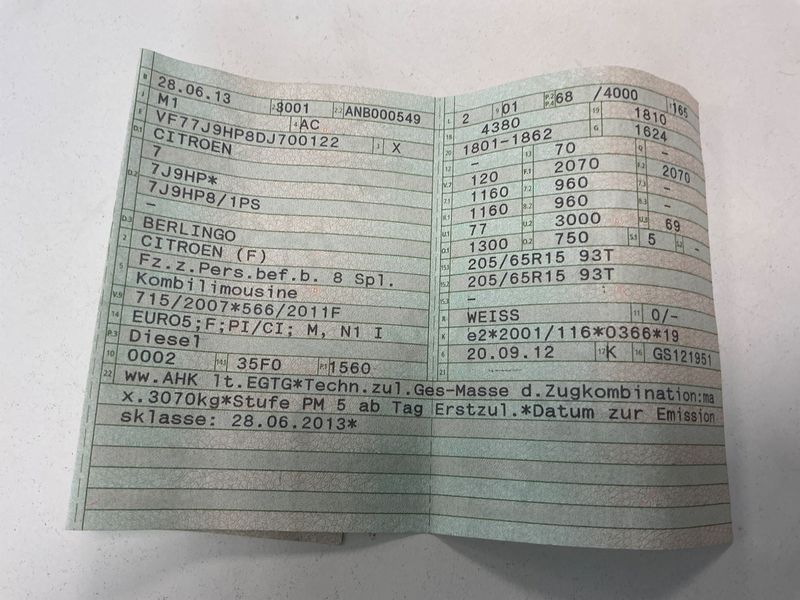 B 28.06.13 2.1 3001 2.2 ANB000549
J M1 4 AC
E VF77J9HP8DJ700122 3 X
D.1 CITROEN
7
D.2 7J9HP*
7J9HP8/1PS
-
D.3 BERLINGO
2 CITROEN (F)
5 Fz.z.Pers.bef.b. 8 Spl.
Kombilimousine
V.9 715/2007*566/2011F
14 EURO5;F;PI/CI; M, N1 I
P.3 Diesel
10 0002 14.1 35F0 P.1 1560
L 2 9 01 P.2 P.4 68 /4000 T 165
18 4380 19 1810
20 1801-1862 G 1624
12 - 13 70 Q -
V.7 120 F.1 2070 F.2 2070
7.1 1160 7.2 960 7.3 -
8.1 1160 8.2 960 8.3 -
U.1 77 U.2 3000 U.3 69
O.1 1300 O.2 750 S.1 5 S.2 -
15.1 205/65R15 93T
15.2 205/65R15 93T
15.3 -
R WEISS 11 0/-
K e2*2001/116*0366*19
6 20.09.12 17 K 16 GS121951
21
22 ww.AHK lt.EGTG*Techn.zul.Ges-Masse d.Zugkombination:ma
x.3070kg*Stufe PM 5 ab Tag Erstzul.*Datum zur Emission
sklasse: 28.06.2013*